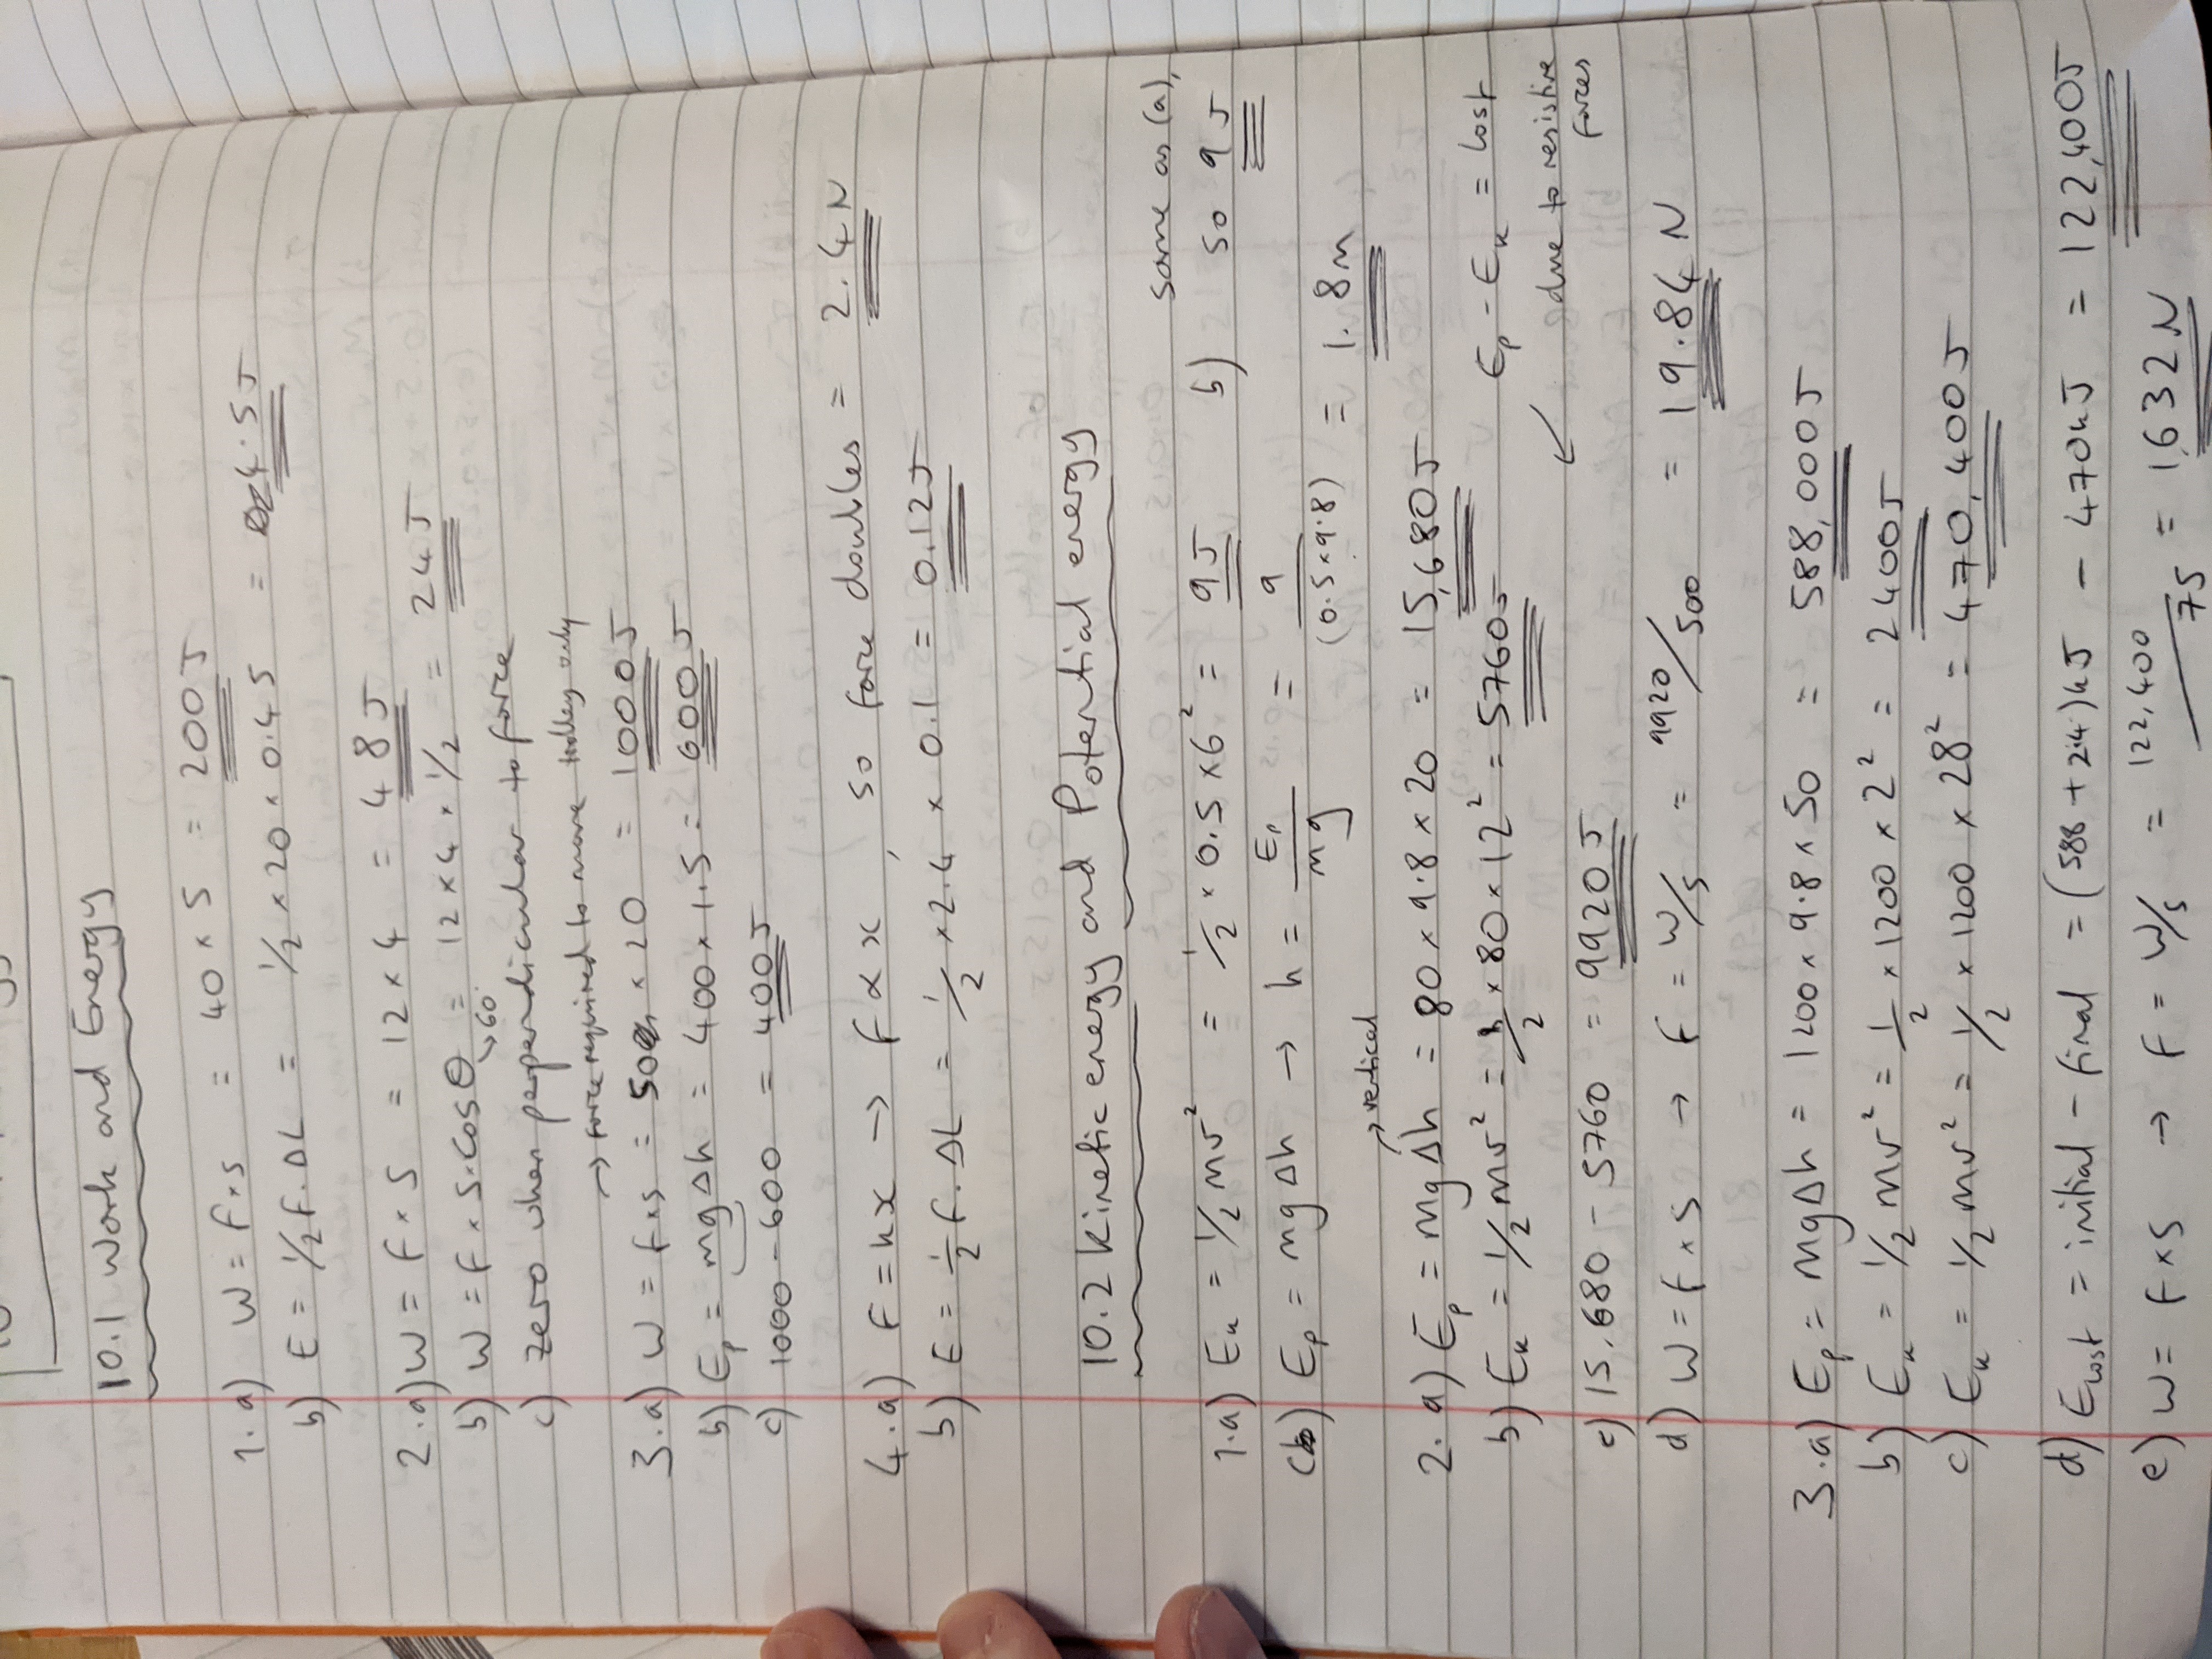 10.1 Work and Energy
1.a) W = F×s = 40 × 5 = 200J
b) E = 1/2 F.ΔL = 1/2 × 20 × 0.45 = 4.5J
2.a) W = F × s = 12 × 4 = 48J
b) W = F × s×cosθ = 12 × 4 × 1/2 = 24J
↳60°
c) zero when perpendicular to force
→ force required to move trolley only
3.a) W = F×s = 50 × 20 = 1000J
b) Ep = mgΔh = 400 × 1.5 = 600J
c) 1000 - 600 = 400J
4.a) F = kx → F ∝ x, so force doubles = 2.4N
b) E = 1/2 F.ΔL = 1/2 × 2.4 × 0.1 = 0.12J
10.2 Kinetic energy and Potential energy
same as (a),
1.a) Ek = 1/2 mv² = 1/2 × 0.5 × 6² = 9J b) so 9J
c) Ep = mgΔh → h = Ep/mg = 9/(0.5×9.8) = 1.8m
→ vertical
2.a) Ep = mgΔh = 80 × 9.8 × 20 = 15,680J
b) Ek = 1/2 mv² = 1/2 × 80 × 12² = 5760J Ep - Ek = lost
↙ due to resistive forces
c) 15,680 - 5760 = 9920J
d) W = F × s → F = W/s = 9920/500 = 19.84N
3.a) Ep = mgΔh = 1200 × 9.8 × 50 = 588,000J
b) Ek = 1/2 mv² = 1/2 × 1200 × 2² = 2400J
c) Ek = 1/2 mv² = 1/2 × 1200 × 28² = 470,400J
d) Elost = initial - final = (588 + 2.4)kJ - 470kJ = 122,400J
e) W = F×s → F = W/s = 122,400/75 = 1,632N